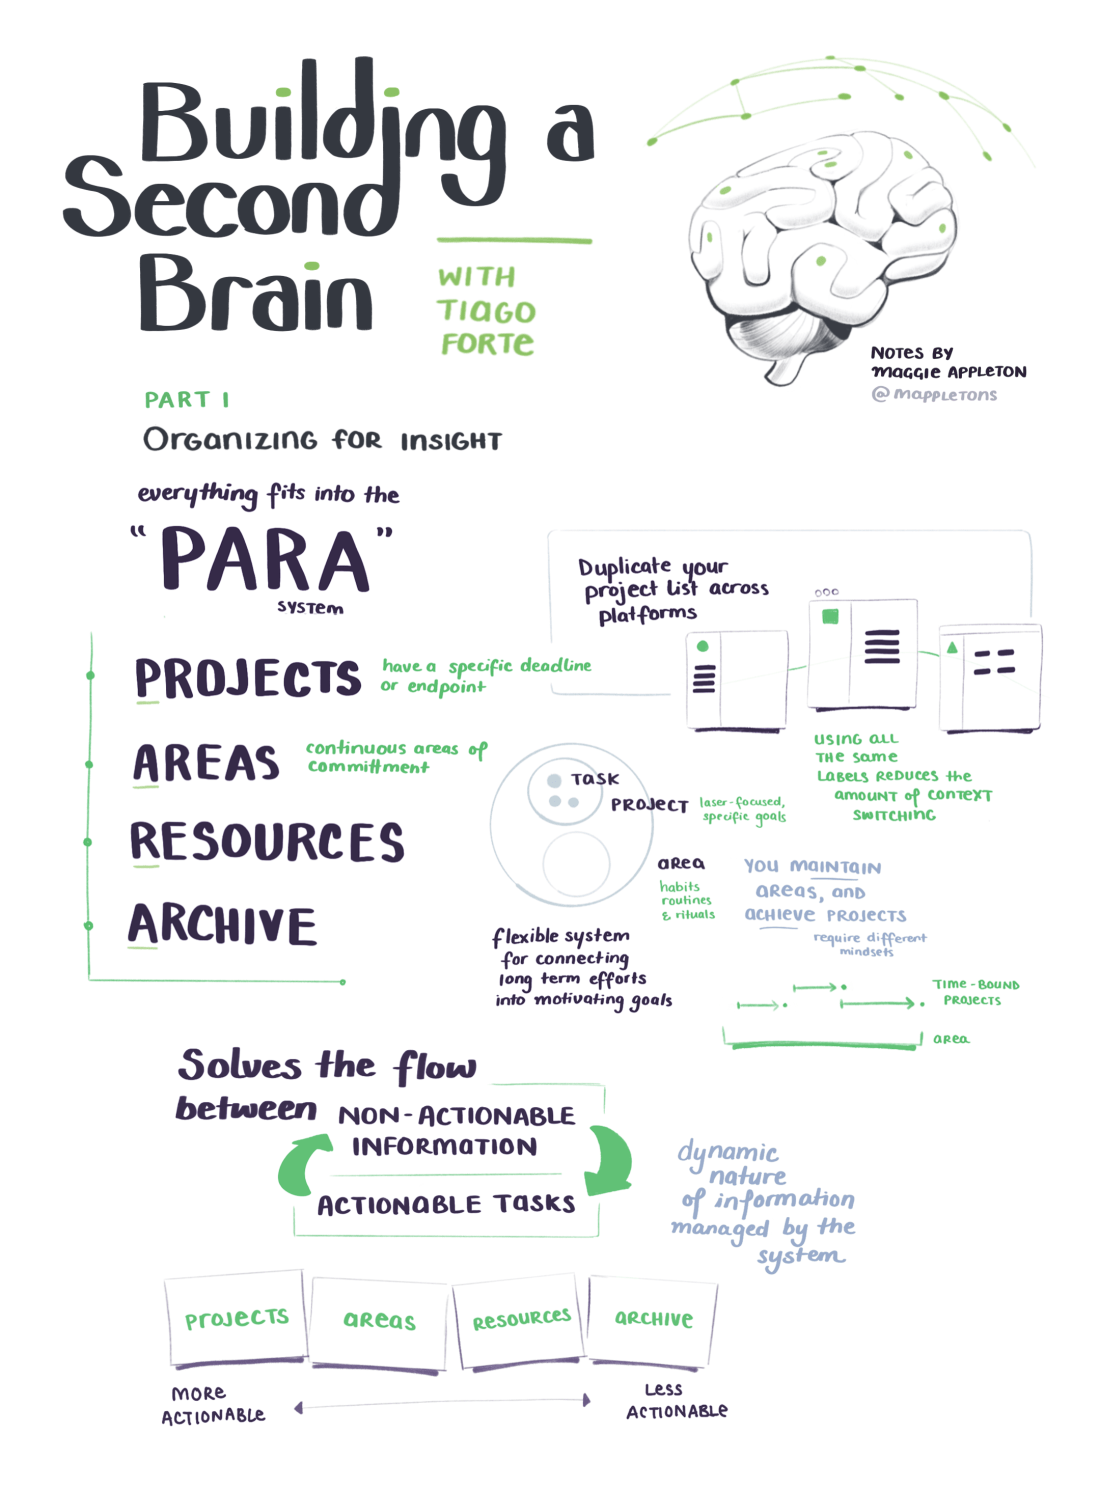 Building a
Second
Brain
WITH
TIAGO
FORTE
NOTES BY
MAGGIE APPLETON
@MAPPLETONS
PART 1
ORGANIZING FOR INSIGHT
everything fits into the
"PARA"
SYSTEM
Duplicate your
project list across
platforms
PROJECTS
have a specific deadline
or endpoint
AREAS
continuous areas of
committment
RESOURCES
ARCHIVE
USING ALL
THE SAME
LABELS REDUCES the
AMOUNT of CONTEXT
SWITCHING
TASK
PROJECT
laser-focused,
specific goals
AREA
habits
routines
& rituals
YOU MAINTAIN
AREAS, AND
ACHIEVE PROJECTS
require different
mindsets
flexible system
for connecting
long term efforts
into motivating goals
TIME-BOUND
PROJECTS
AREA
Solves the flow
between
NON-ACTIONABLE
INFORMATION
ACTIONABLE TASKS
dynamic
nature
of information
managed by the
system
PROJECTS
AREAS
RESOURCES
ARCHIVE
MORE
ACTIONABLE
LESS
ACTIONABLE